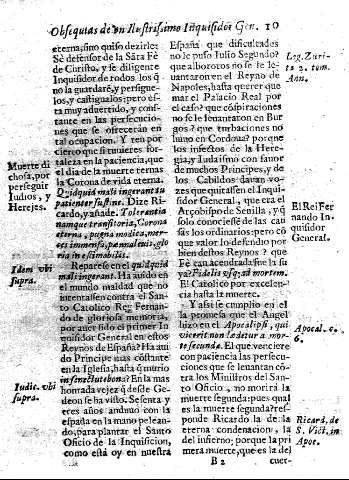 Obsequias de vn Ilustrissimo Inquisidor Gen. 10
eterna, sino quiso dezirle:
Sè defensor de la Sãta Fè
de Christo, y sè diligente
Inquisidor de todos los q̃
no la guardarẽ, y persigue-
los, y castigualos: pero es-
ta muy aduertido, y cons-
tante en las persecucio-
nes que se ofrecerán en
tal ocupacion. Y ten por
cierto que si tuuieres for-
taleza en la paciencia, que
el dia de la muerte ternas
la Corona de vida eterna.
Quidquid mali ingerant tu
patienter sustine. Dize Ri-
cardo, y añade. Tolerantia
namque transitoria, Corona
eterna, pugna modica, mer-
ces immensa, pœna leuis, glo-
ria inestimabilis.
Reparese en el quidquid
mali ingerant. Ha auido en
el mundo maldad que no
intentassen contra el San-
to Catolico Rey Fernan-
do de gloriosa memoria,
por auer sido el primer In
quisidor General en estos
Reynos de España? Ha aui
do Principe mas cõstante
en la Iglesia, hasta q̃ murio
in senectute bona? En la mas
honrada vejez q̃ desde Ge-
deon se ha visto. Sesenta y
tres años anduuo con la
espada en la mano pelean-
do, para plantar el Santo
Oficio de la Inquisicion,
como està oy en nuestra
Muerte di
chosa, por
perseguir
Iudios, y
Herejes.
Idem vbi
supra.
Iudic. vbi
supra.
España que dificultades
no le puso Iulio Segundo?
que alborotos no se le le-
uantaron en el Reyno de
Napoles, hasta querer que
mar el Palacio Real por
el caso? que cõspiraciones
no se le leuantaron en Bur
gos? que turbaciones no
huuo en Cordoua? porque
los infectos de la Here-
gia, y Iudaismo con fauor
de muchos Principes, y de
los Cabildos dauan vo-
zes que quitassen el Inqui-
sidor General, que era el
Arçobispo de Seuilla, y q̃
solo conociesse de las cau
sas los ordinarios: pero cõ
que valor lo defendio por
bien destos Reynos? que
Fè can acendrada fue la su
ya? Fidelis vsq; ad mortem.
El Catolico por excelen-
cia hasta la muerte.
Y assi se cumplio en el
la promesa que el Angel
hizo en el Apocalipsi, qui
vicerit non lædetur a mor-
te secunda. El que venciere
con paciencia las persecu-
ciones que se leuantan cõ-
tra los Ministros del San-
to Oficio, no morirà la
muerte segunda: pues qual
es la muerte segunda? res-
ponde Ricardo la de la
eterna condenacion, la
del infierno; porque la pri
mera muerte, que es la del
B 2 cuer-
Leg. Zuri-
ta 2. tom.
Ann.
El Rei Fer
nando In-
quisidor
General.
Apocal. c.
6.
Ricard. de
S. Vict. in
Apoc.